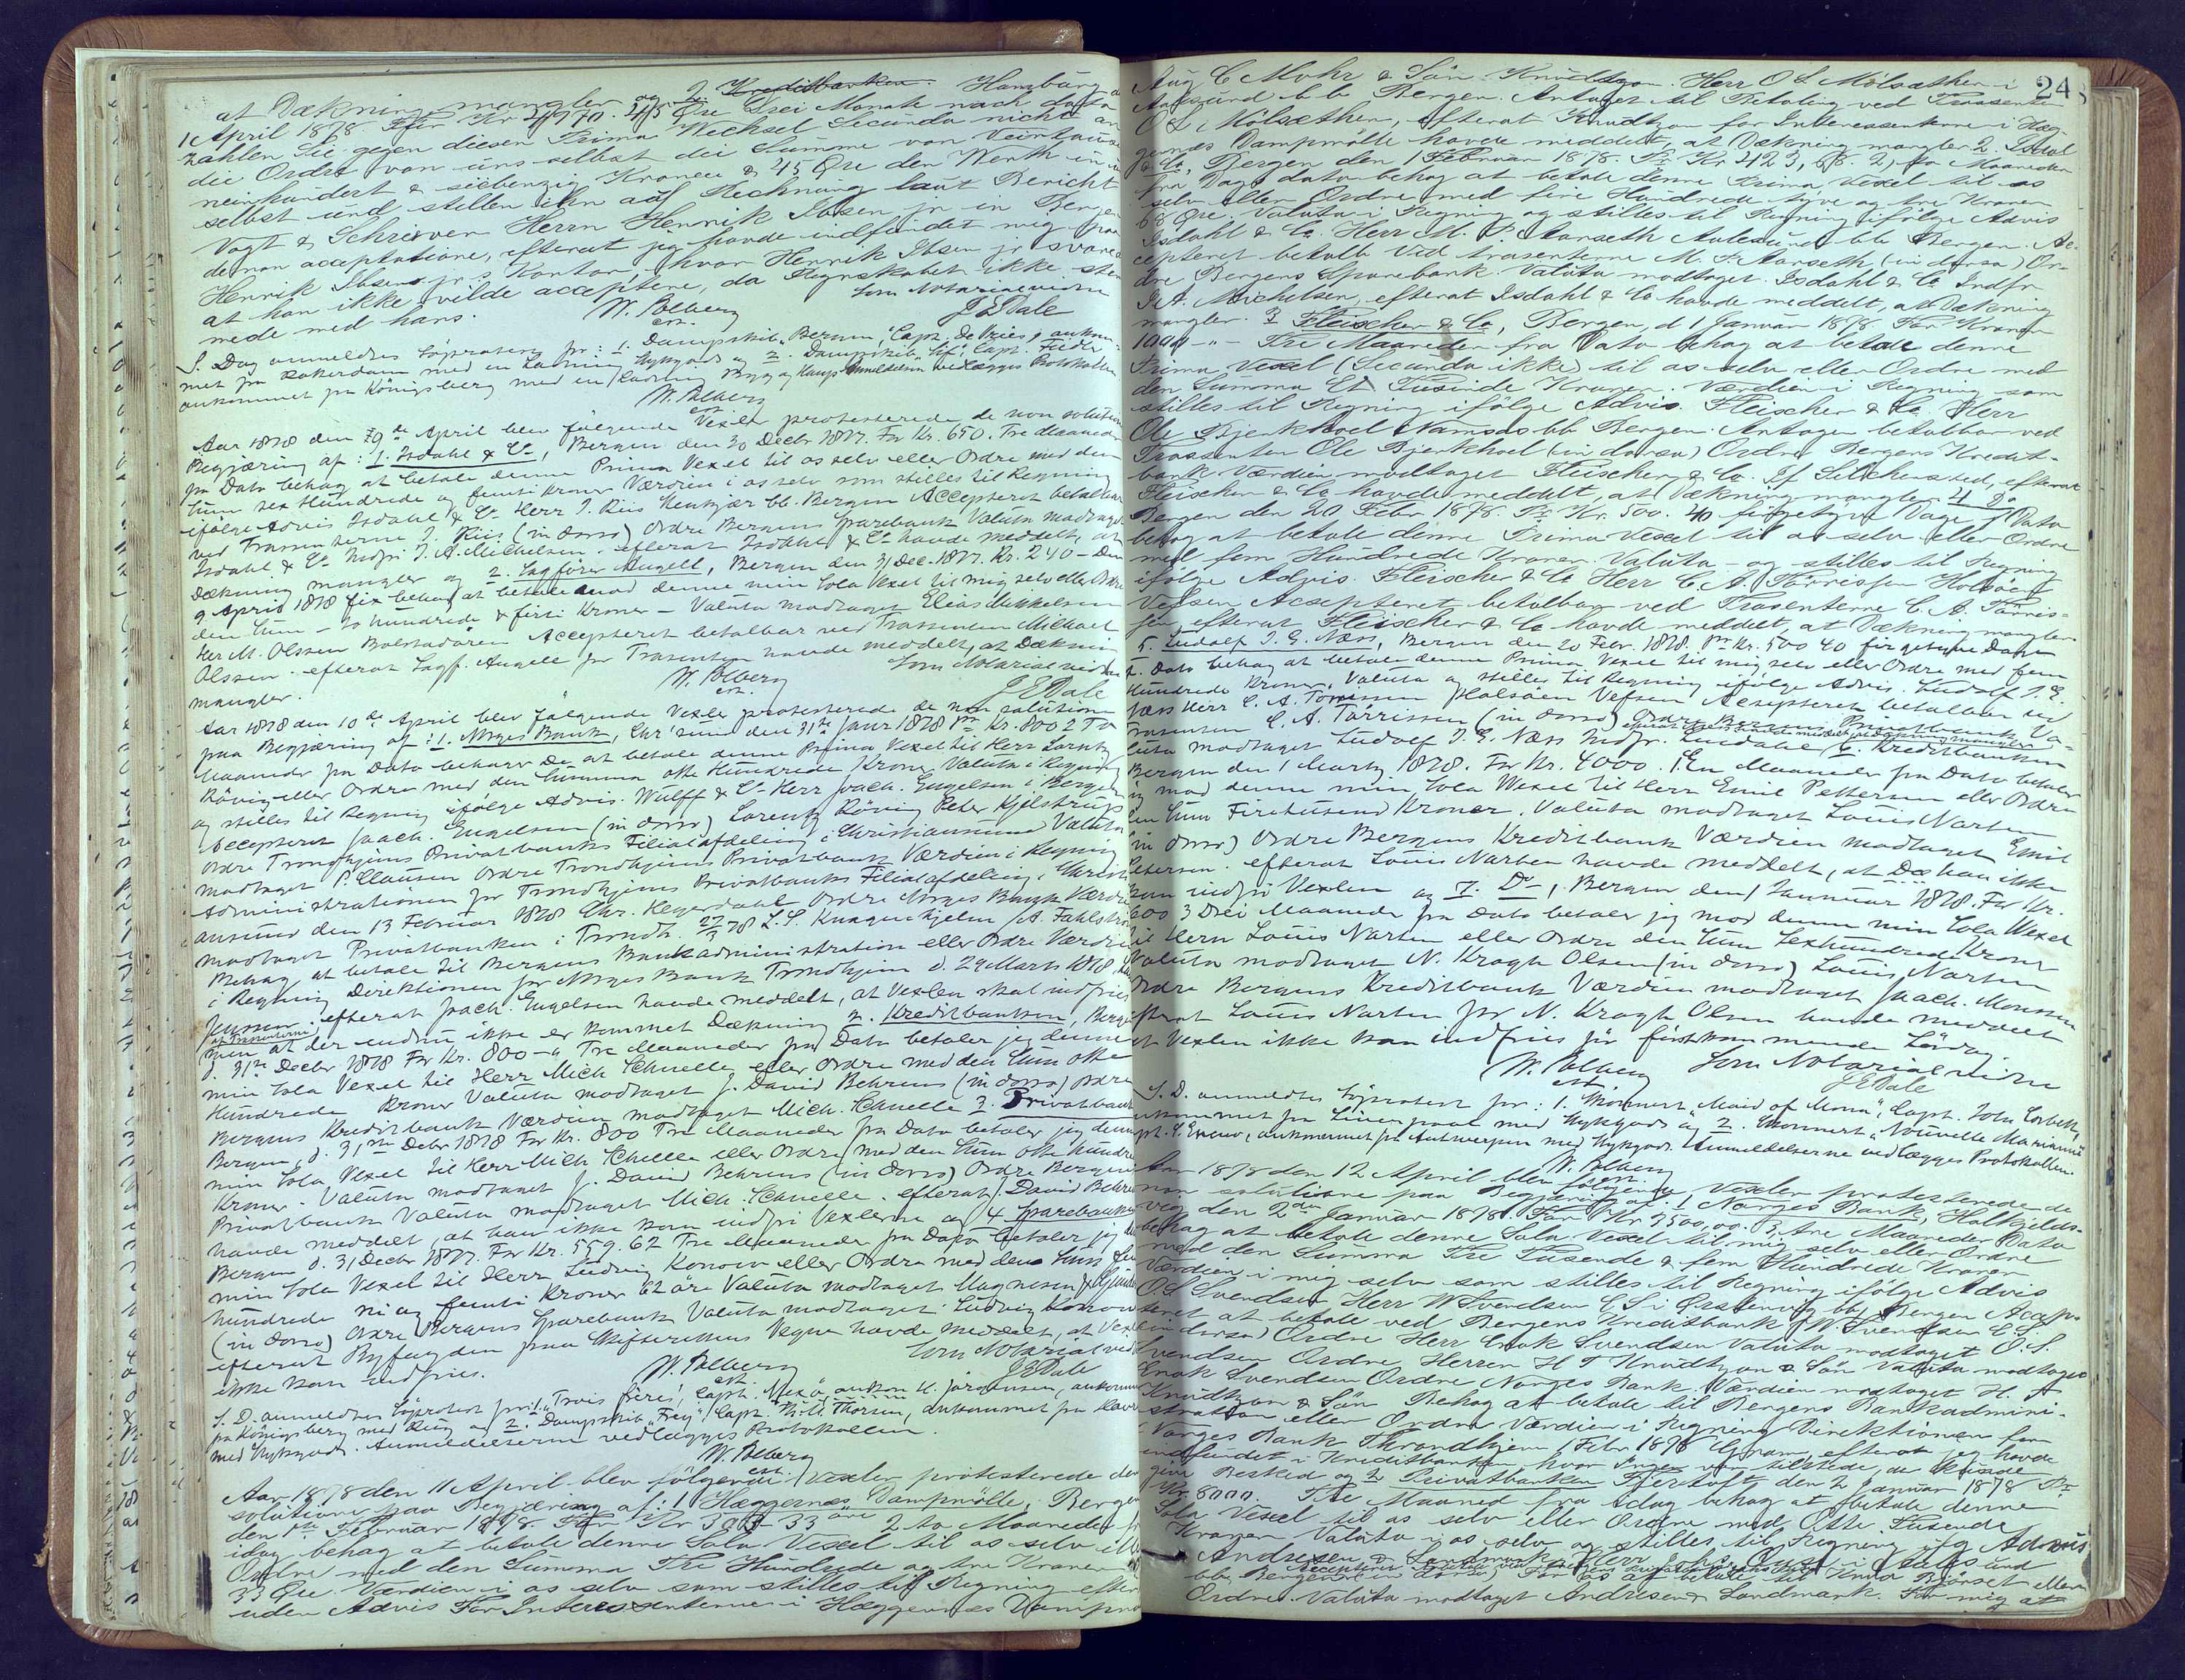 at Dækning mangler og 2 Kreditbanken. Hamburg
1 April 1878 Für Kr 24970.45 Øre Drei Monate nach dato
zahlen Sie gegen diesen Prima Wechsel Secunda nicht an
die Ordre von uns selbst die Summe von
neinhundert & siebenzig Kronen & 45 Øre den Werth in
selbst und stellen ihn auf Rechnung laut Bericht
Vogt & Schriever Herrn Henrik Ibsen jr in Bergen
de non acceptatione, efterat jeg havde indfundet mig paa
Henrik Ibsens jrs Kontor, hvor Henrik Ibsen jr svarede
at han ikke vilde acceptere, da Regnskabet ikke stem
mede med hans.
W. Polberg
Som Notarialvidne
J E Dale
S. Dag anmeldtes Søprotest fr: 1. Dampskib Capt. De Vries, ankom-
met fra Rotterdam med en Ladning Stykgods og 2. Dampskib Capt. Fiedler
ankommet fra Königsberg med en Ladning Byg og Hamp. Anmeldelserne vedlægges Protokollen
W. Polberg
Aar 1878 den 9de April blev følgende Vexler protesterede de non solutione
Begjæring af: 1. Isdahl & Co, Bergen den 30 Decbr 1877. For Kr. 650. Tre Maaneder
fra Dato behag at betale denne Prima Vexel til os selv eller Ordre med den
Sum sex Hundrede og femti Kroner Værdien i os selv som stilles til Regning
ifølge Advis Isdahl & Co Herr J. Riis bb. Bergen Accepteret betalbar
ved Trassenterne J. Riis (in dorso) Ordre Bergens Sparebank Valuta modtaget
Isdahl & Co Indfr. J. A. Michelsen. efterat Isdahl & Co havde meddelt, at
Dækning mangler og 2. Sagfører Angell, Bergen den 31 Dec. 1877. Kr. 240 - Den
9 April 1878 fix behag at betale mod denne min Sola Vexel til mig selv eller Ordre
den Sum - to hundrede & firti Kroner - Valuta modtaget Elias Mikkelsen
Herr M. Olssen Bolstadøren Accepteret betalbar ved Trassenten Michael
Olssen. efterat Sagf. Angell for Trasenten havde meddelt, at Dækning
mangler.
W. Polberg
Som Notarialvidne
J E Dale
Aar 1878 den 10de April blev følgende Vexler protesterede de non solutione
paa Begjæring af: 1. Norges Bank, Chr'sund den 31te Janr 1878 pr Kr. 800 2 To
Maaneder fra Dato behager De at betale denne Prima Vexel til Herr Lorentz
Røvig eller Ordre med den Summa otte Hundrede Kroner Valuta i Regning
og stilles til Regning ifølge Advis. Wulff & Co Herr Joach. Engelsen i Bergen
Accepteret Joach. Engelsen (in dorso) Lorentz Røvig Peter Kjelstrup
Ordre Trondhjems Privatbanks Filialafdeling i Christiansund Valuta
modtaget P. Clausen Ordre Trondhjems Privatbank Værdien i Regning
Administrationen for Trondhjems Privatbanks Filialafdeling i Christi
ansund den 13 Februar 1878 Chr. Heyerdahl Ordre Norges Bank Værdien
modtaget Privatbanken i Trondh. 22/3 78 L. S. Knagenhjelm /A. Fahlstrøm
Behag at betale til Bergens Bankadministration eller Ordre Værdien
i Regning Direktionen for Norges Bank Trondhjem d. 29 Marts 1878
Jenssen. efterat Joach. Engelsen havde meddelt, at Vexlen skal indfries
af Trasenterne
men at der endnu ikke er kommet Dækning 2. Kreditbanken, Bergen
d. 31te Decbr 1878 For Kr. 800 - Tre Maaneder fra Dato betaler jeg denne
min Sola Vexel til Herr Mich Schnelle eller Ordre med den Sum otte
Hundrede Kroner Valuta modtaget J. David Behrens (in dorso) Ordre
Bergens Kreditbank Værdien modtaget Mich. Schnelle 3. Privatbanken
Bergen, d. 31te Debr 1878 For Kr. 800 Tre Maaneder fra Dato betaler jeg denne
min Sola Vexel til Herr Mich Schnelle eller Ordre med den Sum otte hundre
Kroner. Valuta modtaget J. David Behrens (in dorso) Ordre Bergens
Privatbank Valuta modtaget Mich. Schnelle. efterat J. David Behrens
havde meddelt, at han ikke kan indfri Vexlerne og 4 Sparebanken
Bergen d. 31 Decbr 1877. For Kr. 559.62 Tre Maaneder fra Dato betaler jeg
min Sola Vexel til Herr Ludvig Konow eller Ordre med den Sum fem
hundrede ni og femti Kroner 62 øre Valuta modtaget Magnesen &
(in dorso) Ordre Bergens Sparebank Valuta modtaget Ludvig Konow
efterat Byfogden paa Vegne havde meddelt, at Vexlen
ikke kan indfries.
W. Polberg
Som Notarialvidne
J E Dale
S. D. anmeldtes Søprotest fra: 1. "Trois frères", Capt. H. Jørgensen, ankommet
fra Königsberg med Rug og 2. Dampskib "Frey", Capt. Thorsen, ankommet fra
med Stykgods. Anmeldelserne vedlægges Protokollen.
W. Polberg
Aar 1878 den 11 April blev følgende Vexler protesterede de non
solutione paa Begjæring af: 1 Hæggernæs Dampmølle, Bergen
den 1te Februar 1878. For Kr 303 33 øre 2 to Maaneder fra
idag behag at betale denne Sola Vexel til os selv eller
Ordre med den Summa Tre Hundrede og tre Kroner
33 Øre. Værdien i os selv som stilles til Regning efter
uden Advis For Interessenterne i Hæggernæs Dampmølle
24
Aug C Mohr & Søn Knudtzon. Herr O L Mølsæther i
Aalesund bb Bergen. Antaget til Betaling ved Trasenten
O L Mølsæther, efterat Knudtzon for Interessenterne i Hæg-
gernæs Dampmølle havde meddelt, at Dækning mangler 2. Isdahl
& Co, Bergen den 1 Februar 1878. Pr Kr 423,68. 2, to Maaneder
fra Dags dato behag at betale denne Prima Vexel til os
selv eller Ordre med fire Hundrede tyve og tre Kroner
68 Øre. Valuta i Regning og stilles til Regning ifølge Advis
Isdahl & Co. Herr M. P. Aarseth Aalesund bb Bergen. Ac-
cepteret betalb ved trasenterne M. P. Aarseth (in dorso) Or-
dre Bergens Sparebank. Valuta modtaget. Isdahl & Co Indfr.
J. A. Michelsen, efterat Isdahl & Co havde meddelt, at Dækning
mangler. 3 Fleischer & Co, Bergen, d 1 Januar 1878 For Kroner
1000 -"- Tre Maaneder fra Dato behag at betale denne
Prima Vexel (Secunda ikke) til os selv eller Ordre med
den Summa Et Tusinde Kroner. Værdien i Regning som
stilles til Regning ifølge Advis. Fleischer & Co Herr
Ole Bjerkhoel Namsos bb Bergen. Antagen betalbar ved
Trassenten Ole Bjerkhoel (in dorso) Ordre Bergens Kredit-
bank Værdien modtaget Fleischer & Co. If. efterat
Fleischer & Co havde meddelt, at Dækning mangler 4 Do
Bergen den 20 Febr 1878. Pr Kr. 500. 40 firgetyve Dage f Dato
behag at betale denne Prima Vexel til os selv eller Ordre
med fem Hundrede Kroner. Valuta - og stilles til Regning
ifølge Advis. Fleischer & Co Herr C. A. Tørrissen Holsøen
Vefsen Accepteret betalbar ved Trasenterne C. A. Tørris-
sen, efterat Fleischer & Co havde meddelt, at Dækning mangler
5. Ludolf J. G. Næss, Bergen den 20 Febr. 1878. Pr Kr. 500 40 firgetyve Dage
f. Dato behag at betale denne Prima Vexel til mig selv eller Ordre med fem
Hundrede Kroner, Valuta og stilles til Regning ifølge Advis. Ludolf J. G.
Næss Herr C. A. Tørrissen Holsøen Vefsen Accepteret betalbar ved
Trasenten C. A. Tørrissen (in dorso) Ordre Bergens Privatbank Va-
luta modtaget Ludolf J. G. Næss Indfr. Lindahl 6. Kreditbanken
Bergen den 1 Marts 1878. For Kr. 4000. 1 En Maaned fra Dato betaler
jeg mod denne min Sola Wexel til Herr Emil Pettersen eller Ordre
den Sum Firetusend Kroner. Valuta modtaget Louis Narten
(in dorso) Ordre Bergens Kreditbank Værdien modtaget Emil
Petersen. efterat Louis Narten havde meddelt, at han ikke
kan indfri Vexlen og 7. Do, Bergen den 1 Januar 1878. For Kr.
600 3 Drei Maaneder fra Dato betaler jeg mod denne min Sola Wexel
til Herrn Louis Narten eller Ordre den Sum Sexhundrede Kroner
Valuta modtaget N. Krogh Olsen (in dorso) Louis Narten
Ordre Bergens Kreditbank Værdien modtaget Joach. Monssen
efterat Louis Narten for N. Krogh Olsen havde meddelt
at Vexlen ikke kan indfries før førstkommende Lørdag.
W. Polberg
Som Notarialvidne
J E Dale
S. D. anmeldtes Søprotest fr: 1. Skonnert "Maid of Mona", Capt. John Corbett,
ankommet fra Liverpool med Stykgods og 2. Skonnert "Nouvelle Marianne"
Capt. ankommet fra Antwerpen med Stykgods. Anmeldelserne vedlægges Protokollen.
W. Polberg
Aar 1878 den 12 April blev følgende Vexler protesterede de
non solutione paa Begjæring af: 1 Norges Bank, Halkjelds-
vig den 2den Januar 1878. For Kr 3500,00. 3, tre Maaneder Dato
behag at betale denne Sola Vexel til mig selv eller Ordre
med den Summa Tre Tusende & fem Hundrede Kroner
Værdien i mig selv som stilles til Regning ifølge Advis
O S Svendsen Herr W Svendsen E S i Ørstenvig bb Bergen Accep-
teret at betale ved Bergens Kreditbank W. Svendsen E S.
(in dorso) Ordre Herr Enok Svendsen Valuta modtaget O. S.
Svendsen Ordre Herrer H T Knudtzon & Søn Valuta modtaget
Enok Svendsen Ordre Norges Bank. Værdien modtaget H. T
Knudtzon & Søn Behag at betale til Bergens Bankadmini-
stration eller Ordre Værdien i Regning Direktionen for
Norges Bank Throndhjem 1 Febr 1878 Gram, efterat jeg havde
indfundet i Kreditbanken, hvor Ingen var tilstede, der kunde
give Besked og 2 Privatbanken Fjørtoft den 2 Januar 1878 Pr
Kr. 8000. Tre Maaned fra idag behag at betale denne
Sola Vexel til os selv eller Ordre med Otte Tusende
Kroner Valuta i os selv og stilles til Regning ifg Advis
Andresen & Landmark Herr Johs Aalesund
bb Bergen (in dorso) For os at betale til Knud Bjørset eller
Ordre. Valuta modtaget Andresen & Landmark. For mig at